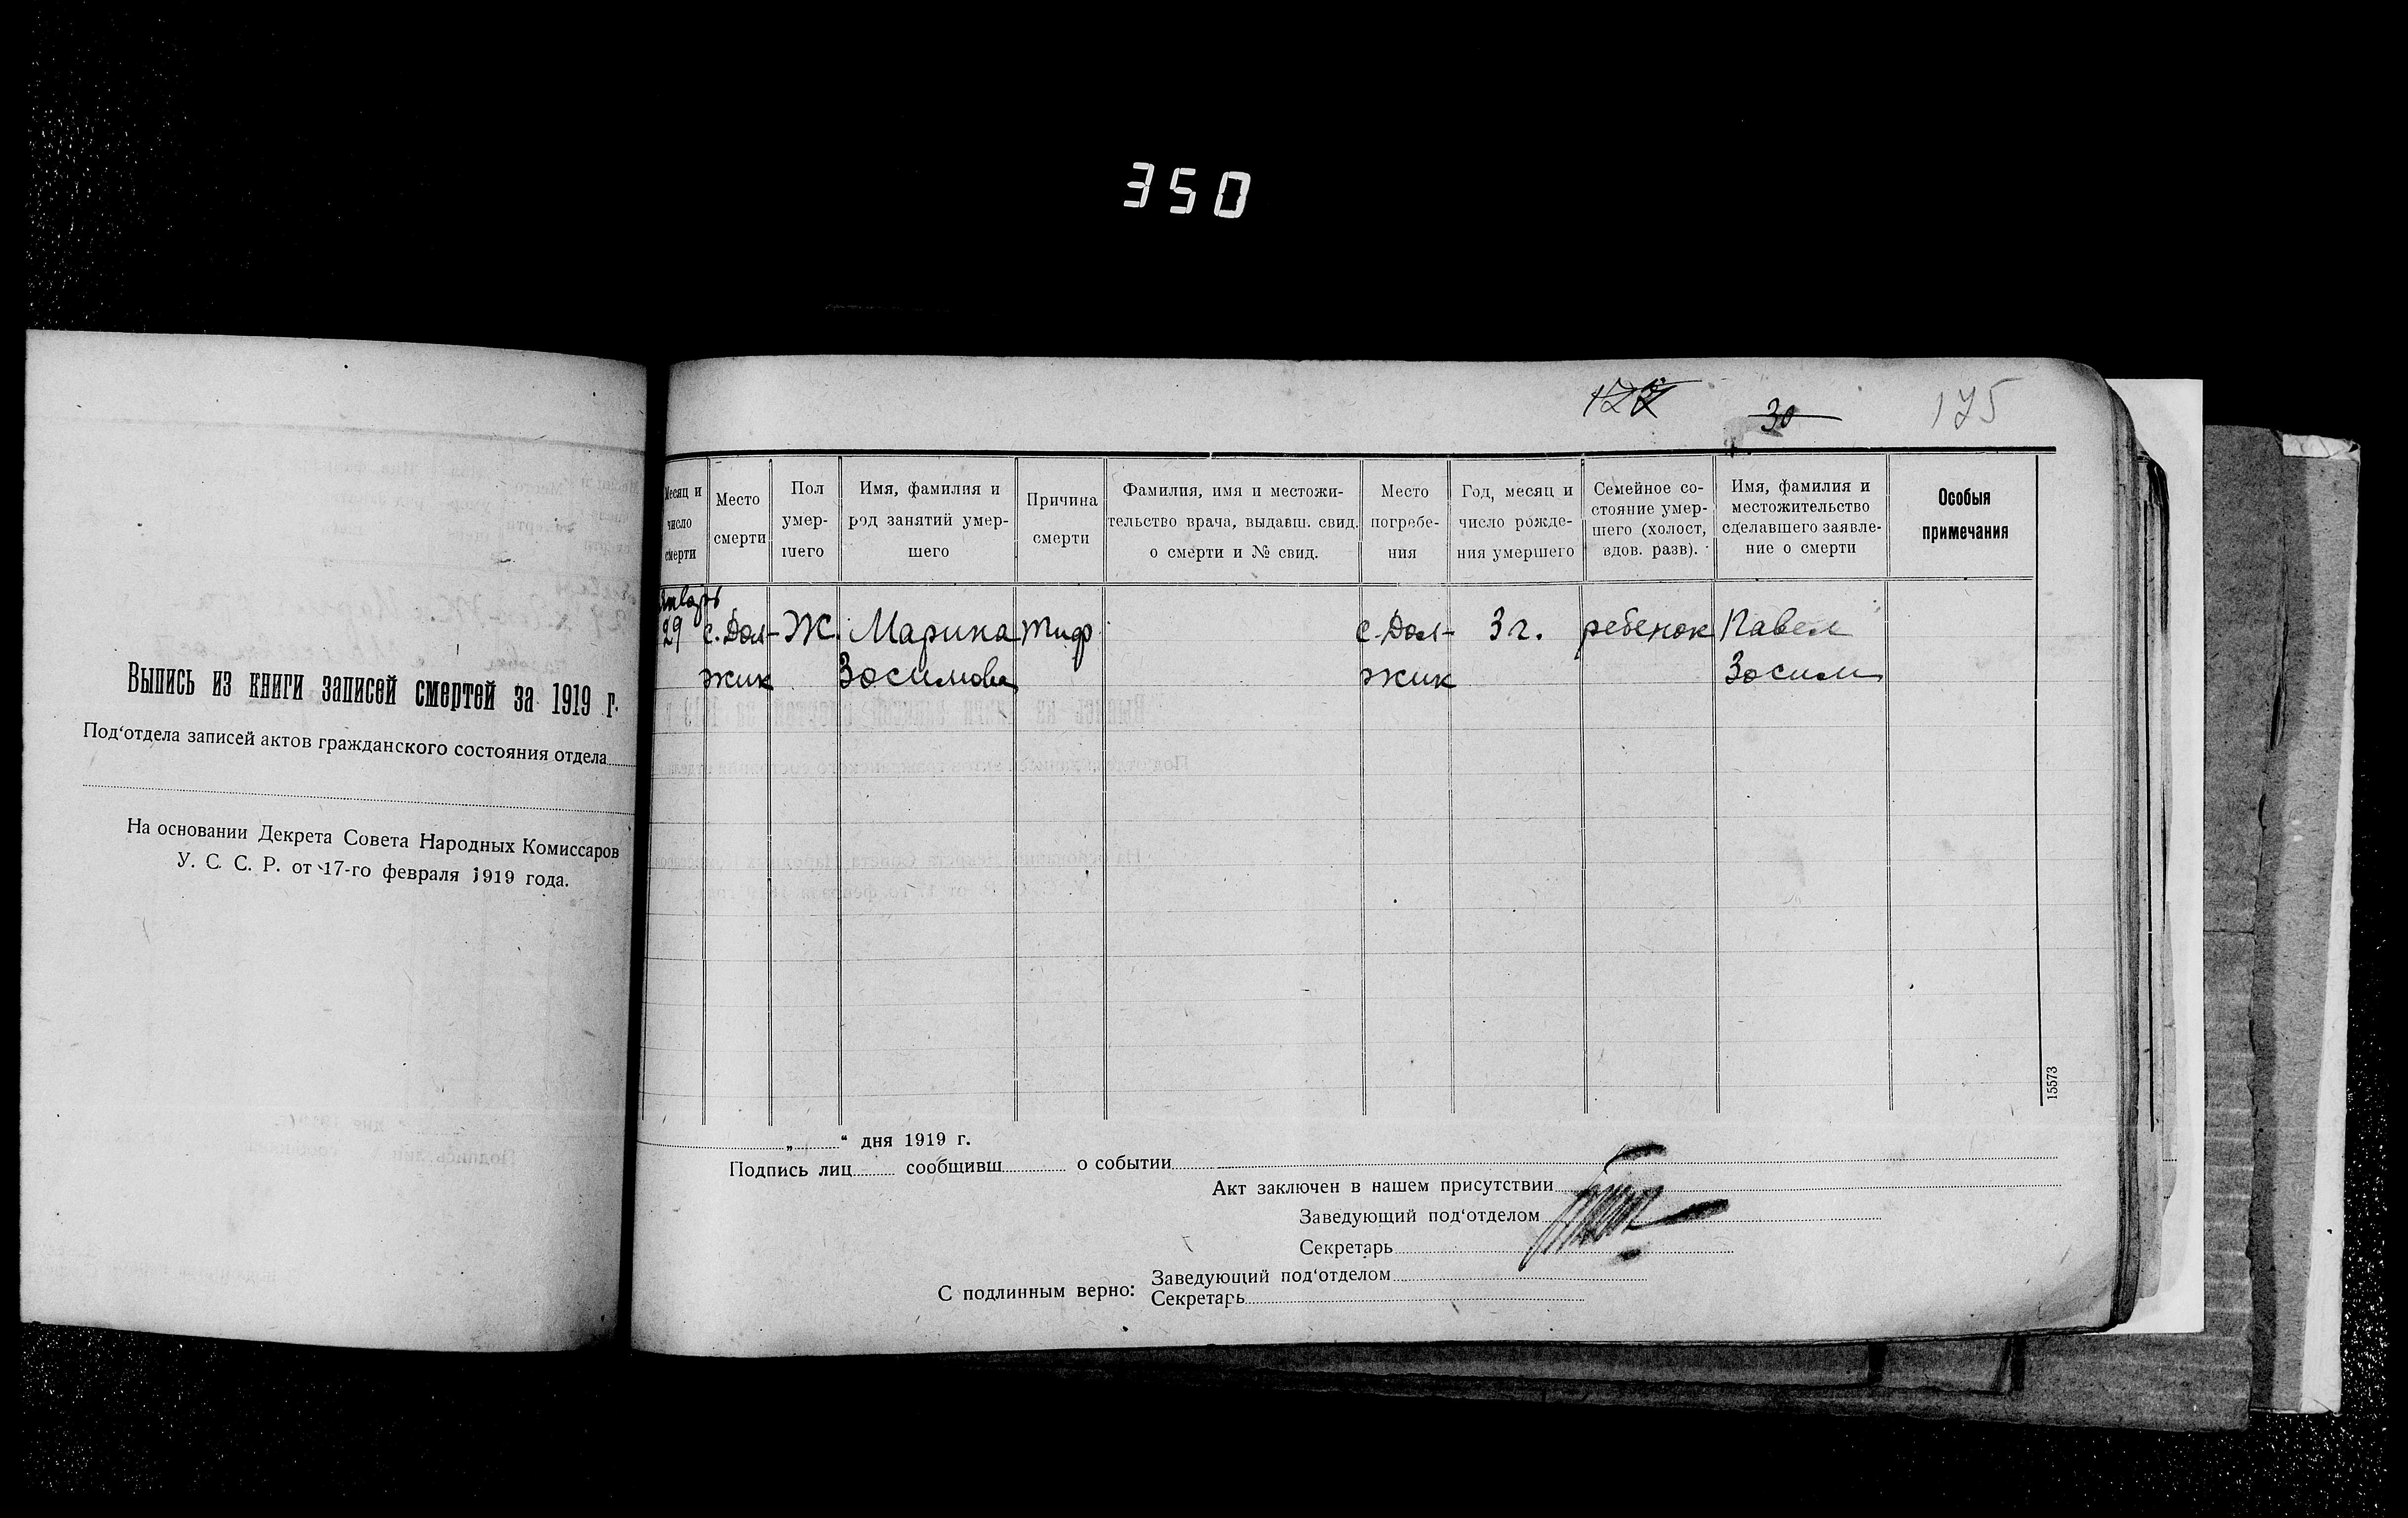 350
122
30
175
Выпись из книги записей смертей за 1919 г.
Под‘отдела записей актов гражданского состояния отдела
На основании Декрета Совета Народных Комиссаров
У. С. С. Р. от 17-го февраля 1919 года.
Месяц и число смерти
Место смерти
Пол умер-шего
Имя, фамилия и род занятий умер-шего
Причина смерти
Фамилия, имя и местожи-тельство врача, выдавш. свид. о смерти и № свид.
Место погребе-ния
Год, месяц и число рожде-ния умершего
Семейное со-стояние умер-шего (холост, вдов. разв).
Имя, фамилия и местожительство сделавшего заявле-ние о смерти
Особыя примечания
Январь
29 с. Дол- Ж. Марина тиф с. Дол- 3 г. ребенок Павел
жик Зосимова жик Зосим
15573
„ “ дня 1919 г.
Подпись лиц сообщивш о событии
Акт заключен в нашем присутствии
Заведующий под‘отделом
Секретарь
С подлинным верно: Заведующий под‘отделом
Секретарь